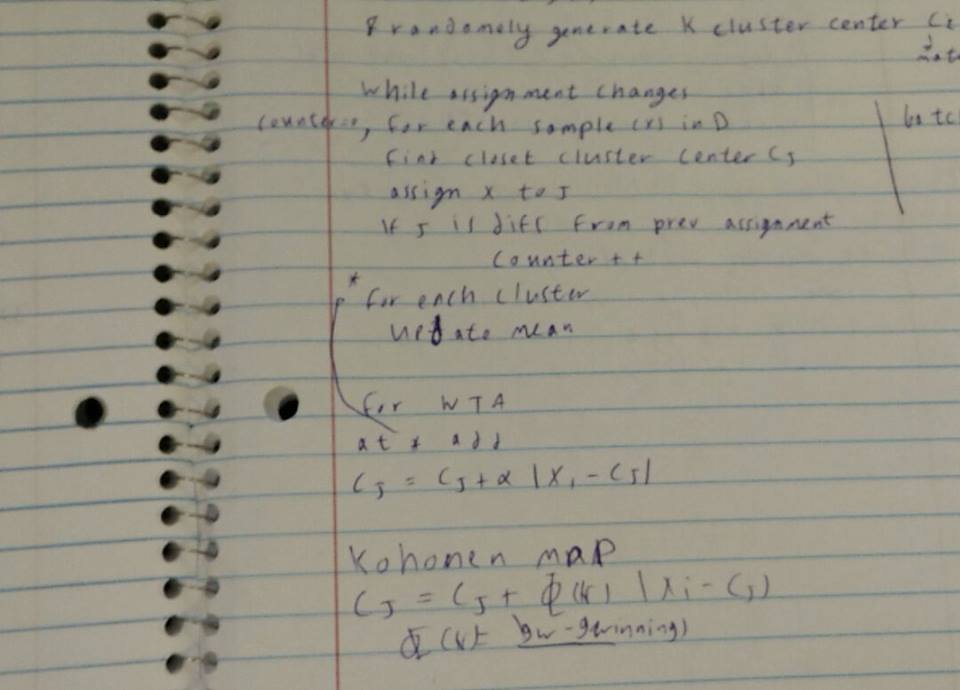 & randomely generate K cluster center Ci
While assignment changes
counter=0, for each sample (x) in D
find closet cluster center Cj
assign x to J
If J is diff from prev assignment
Counter ++
* for each cluster
update mean
for WTA
at * add
Cj = Cj + α |Xi - Cj|
Kohonen map
Cj = Cj + Φ(k) |Xi - Cj)